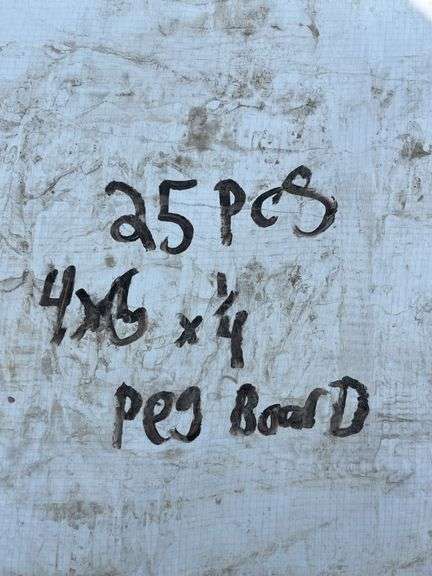 25 PCS
x 1/4
Peg BoarD